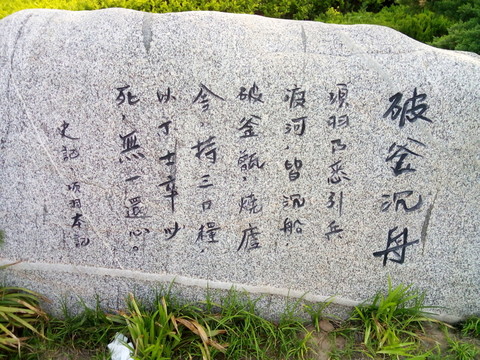 破釜沉舟
项羽乃悉引兵
渡河，皆沉船，
破釜甑，烧庐
舍，持三日糧，
以示士卒必
死，無一還心。
史記·项羽本記